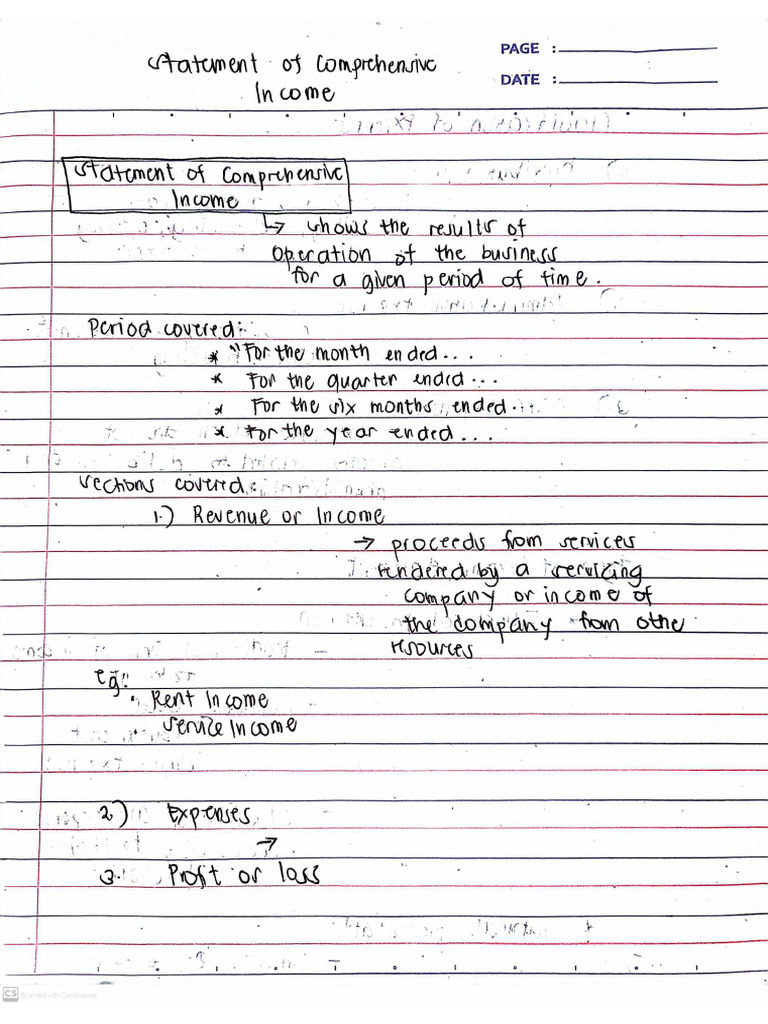 PAGE :
DATE :
Statement of Comprehensive
Income
Statement of Comprehensive
Income
↳ shows the results of
operation of the business
for a given period of time.
Period covered:
* "For the month ended...
* For the quarter ended...
* For the six months ended...
* For the year ended...
Sections covered:
1.) Revenue or Income
→ proceeds from services
rendered by a servicing
company or income of
the company from othe
resources
eg:
• Rent Income
Service Income
2) Expenses
→
3. Profit or loss
CS Scanned with CamScanner